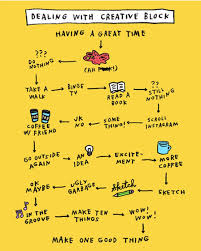 DEALING WITH CREATIVE BLOCK
HAVING A GREAT TIME
???
DO
NOTHING
(AH
???
STILL
NOTHING
TAKE A
WALK
BINGE
TV
READ A
BOOK
COFFEE
W/ FRIEND
JK
NO
SOME
THING!
SCROLL
INSTAGRAM
GO OUTSIDE
AGAIN
AN
IDEA
EXCITE-
MENT
MORE
COFFEE
OK
MAYBE
UGLY
GARBAGE
Sketch
SKETCH
IN THE
GROOVE
MAKE TEN
THINGS
WOW!
WOW!
MAKE ONE GOOD THING